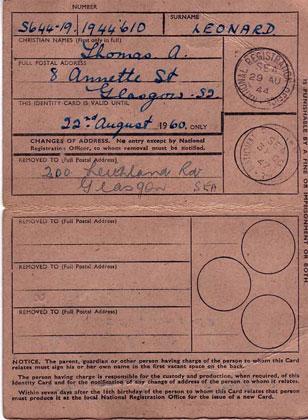 NUMBER
SURNAME
S644-19. 1944610 LEONARD
CHRISTIAN NAMES (First only in full)
Thomas A.
FULL POSTAL ADDRESS
8 Annette St
Glasgow. S2
THIS IDENTITY CARD IS VALID UNTIL
22nd August 1960. ONLY
NATIONAL REGISTRATION OFFICE
29 AU
44
CHANGES OF ADDRESS. No entry except by National
Registration Officer, to whom removal must be notified.
REMOVED TO (Full Postal Address)
200 Rd
Glasgow
REMOVED TO (Full Postal Address)
REMOVED TO (Full Postal Address)
REMOVED TO (Full Postal Address)
NOTICE. The parent, guardian or other person having charge of the person to whom this Card
relates must sign his or her own name in the first vacant space on the back.
The person having charge is responsible for the custody and production, when required, of this
Identity Card and for the notification of any change of address of the person to whom it relates.
Within seven days after the 16th birthday of the person to whom this Card relates that person
must produce it at the local National Registration Office for the issue of a new Card.
IS PUNISHABLE BY A FINE OR IMPRISONMENT OR BOTH